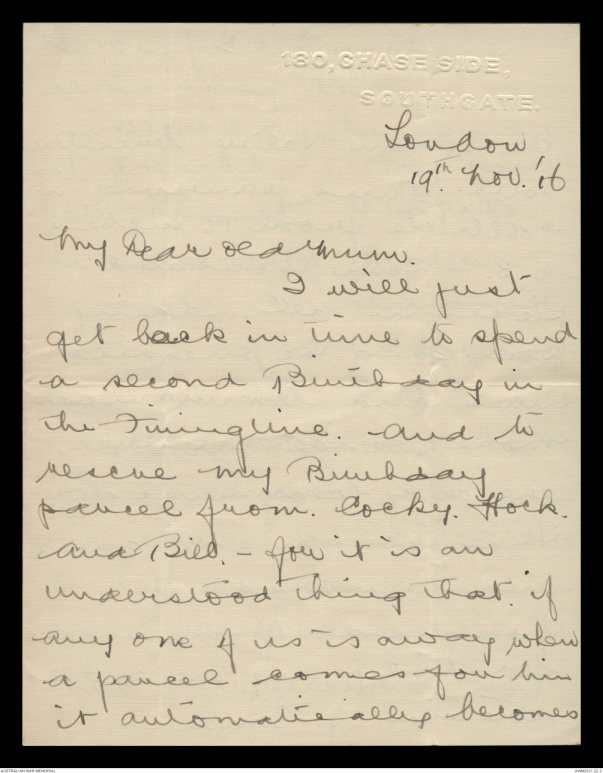 180, CHASE SIDE,
SOUTHGATE.
London
19th Nov. '16
My Dear old Mum.
I will just
get back in time to spend
a second Birthday in
the Firingline. and to
rescue my Birthday
parcel from. Cocky. Hock.
and Bill. - for it is an
understood thing that if
any one of us is away when
a parcel comes for him
it automatically becomes
AUSTRALIAN WAR MEMORIAL